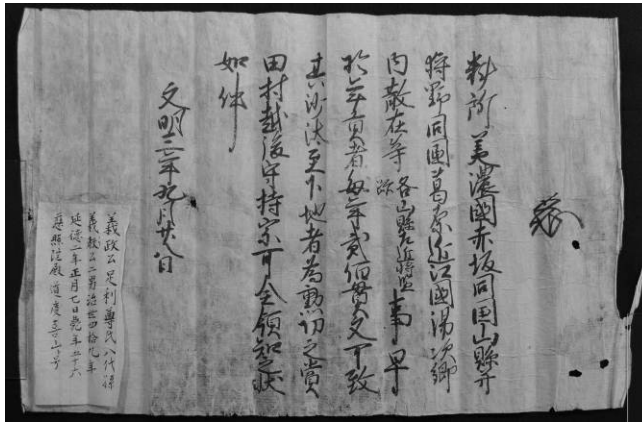 料所美濃國赤坂同国山縣并
将監同國葛原近江國湯次郷
内散在等各山縣右近将監跡事早
於年貢者毎年貳佰貫文可致
其沙汰至下地者為勲功之賞
田村越後守持宗可全領知之状
如件
文明三年九月廿八日
義政公足利尊氏八代孫
義教公二男治世四拾九年
延徳二年正月七日薨年五十六
慈照院殿道慶